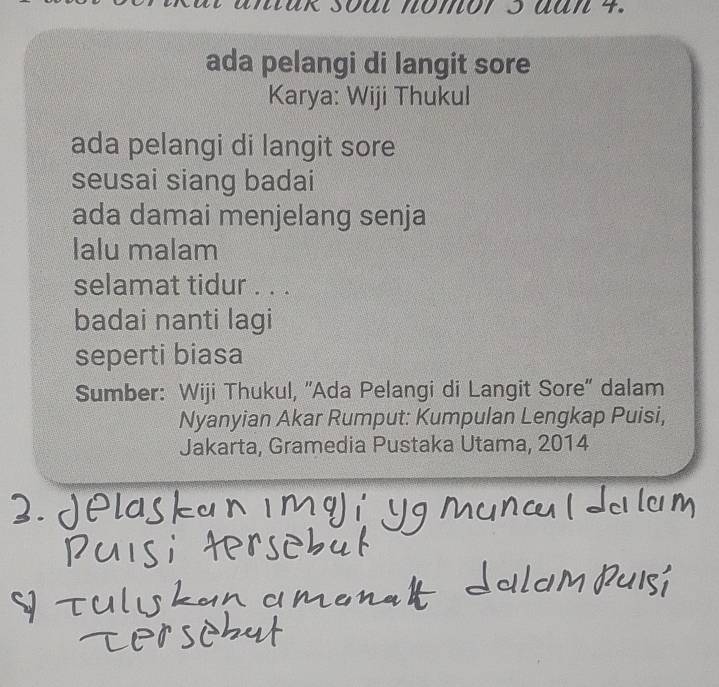 untuk soal nomor 3 dan 4.
ada pelangi di langit sore
Karya: Wiji Thukul
ada pelangi di langit sore
seusai siang badai
ada damai menjelang senja
lalu malam
selamat tidur . . .
badai nanti lagi
seperti biasa
Sumber: Wiji Thukul, "Ada Pelangi di Langit Sore" dalam
Nyanyian Akar Rumput: Kumpulan Lengkap Puisi,
Jakarta, Gramedia Pustaka Utama, 2014
3. Jelaskan imaji yg muncul dalam
puisi tersebut
Tuliskan amanat dalam puisi
tersebut